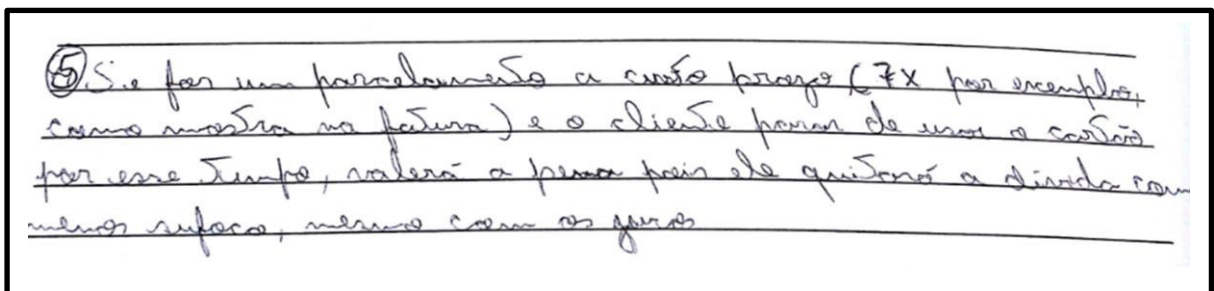 ⑤ Se for um parcelamento a curto prazo (7x por exemplo,
como mostra na fatura) e o cliente parar de usar o cartão
por esse tempo, valerá a pena pois ele quitará a dívida com
menos sufoco, mesmo com os juros